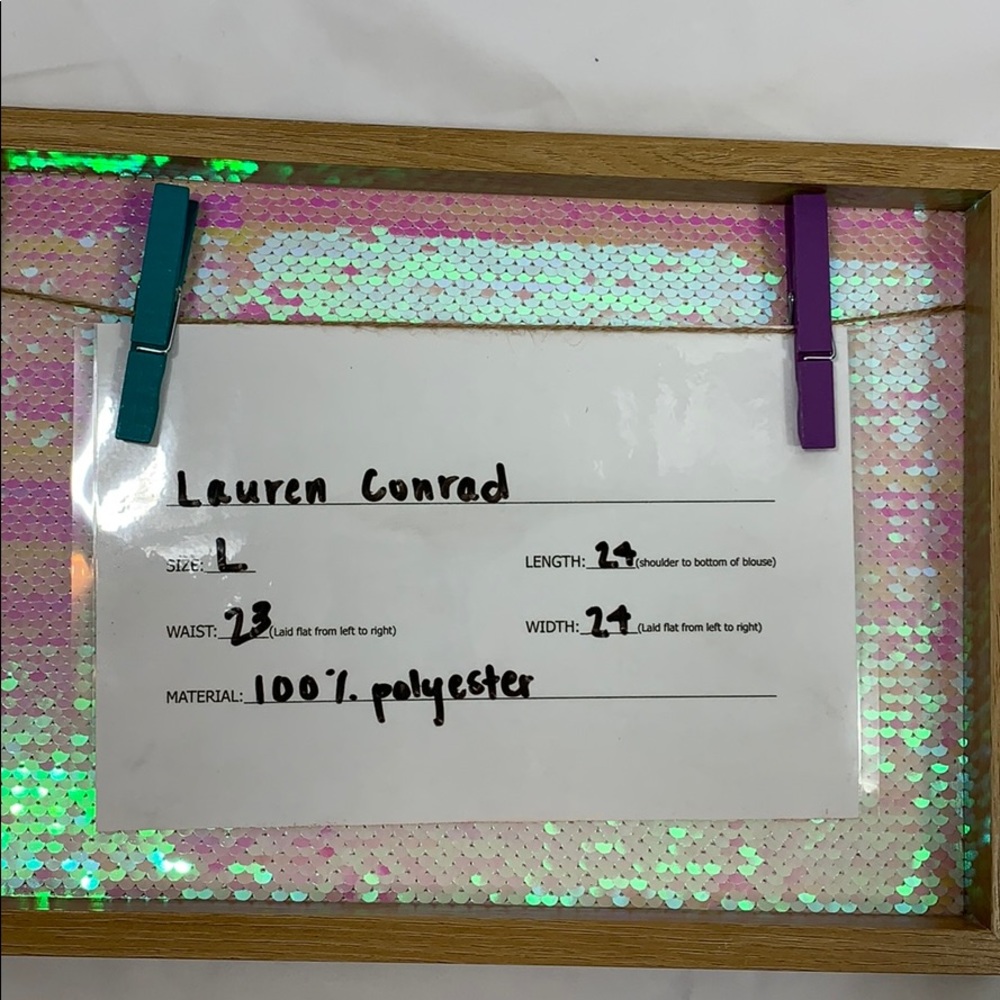 Lauren Conrad
SIZE: L LENGTH: 24 (shoulder to bottom of blouse)
WAIST: 23 (Laid flat from left to right) WIDTH: 24 (Laid flat from left to right)
MATERIAL: 100% polyester